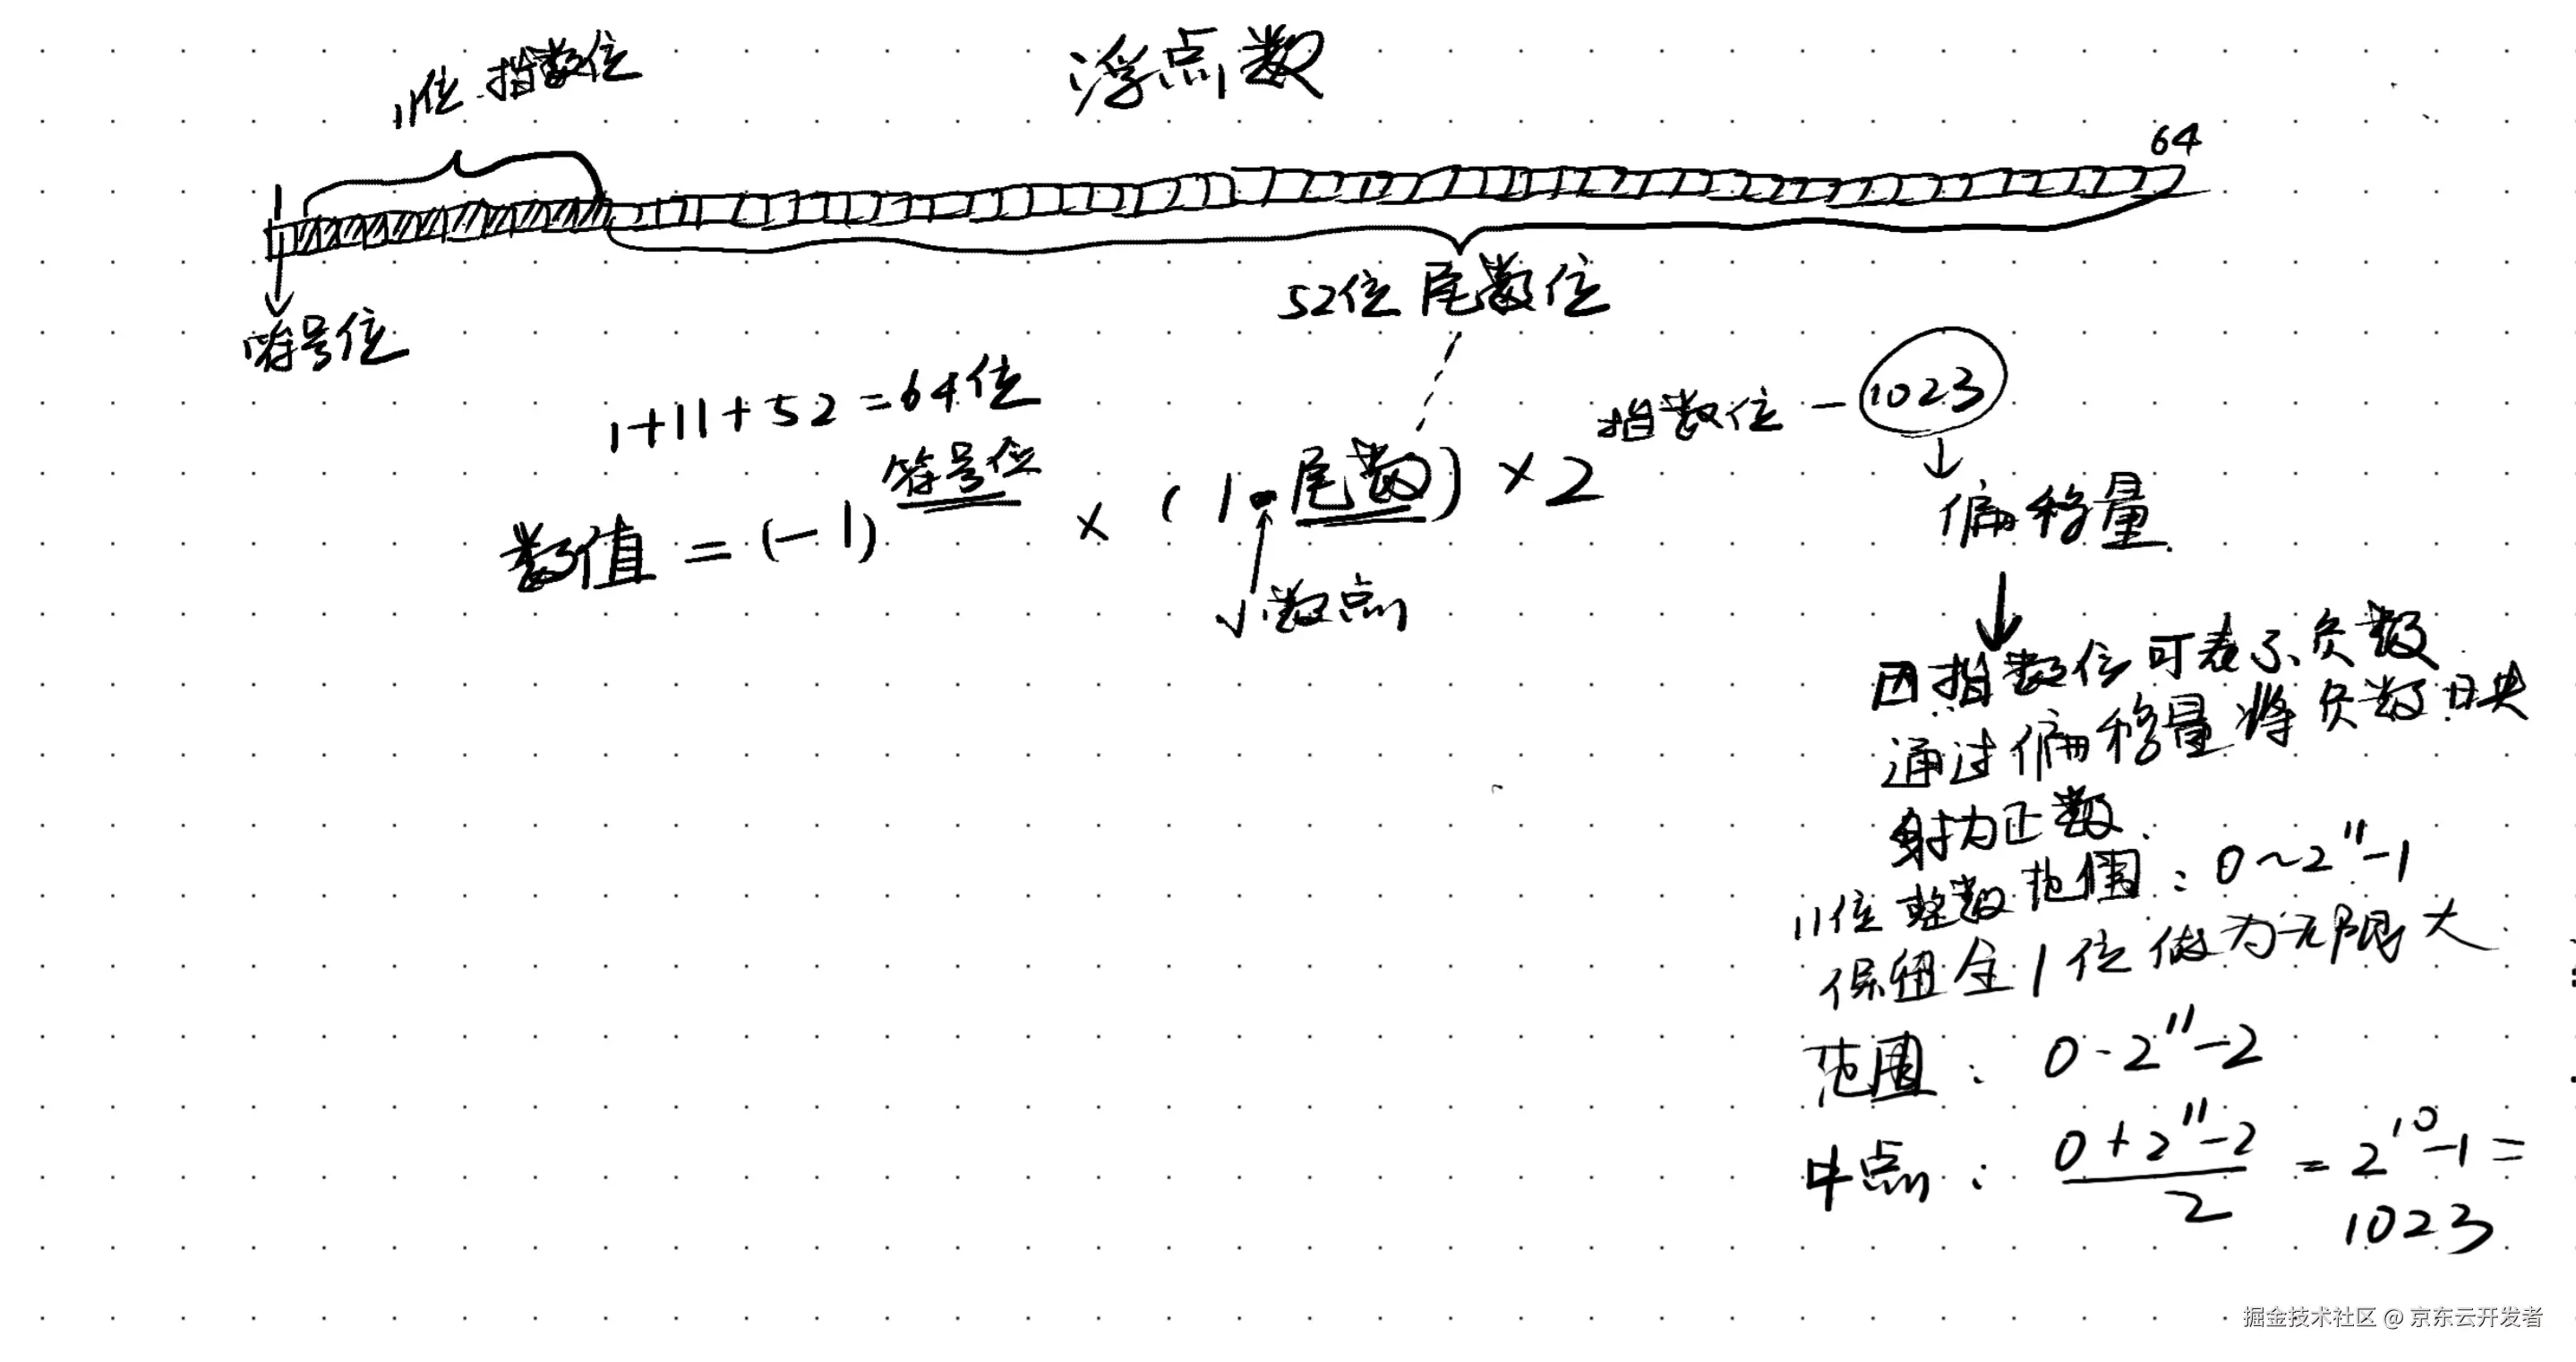 浮点数
11位 指数位
64
符号位
52位 尾数位
1+11+52=64位
数值 = (-1)^符号位 × (1.尾数) × 2^指数位 - 1023
小数点
偏移量
因指数位可表示负数
通过偏移量将负数映
射为正数
11位整数范围：0~2^11-1
保留全1位做为无限大
范围：0-2^11-2
中点：(0+2^11-2)/2 = 2^10-1 =
1023
掘金技术社区 @ 京东云开发者